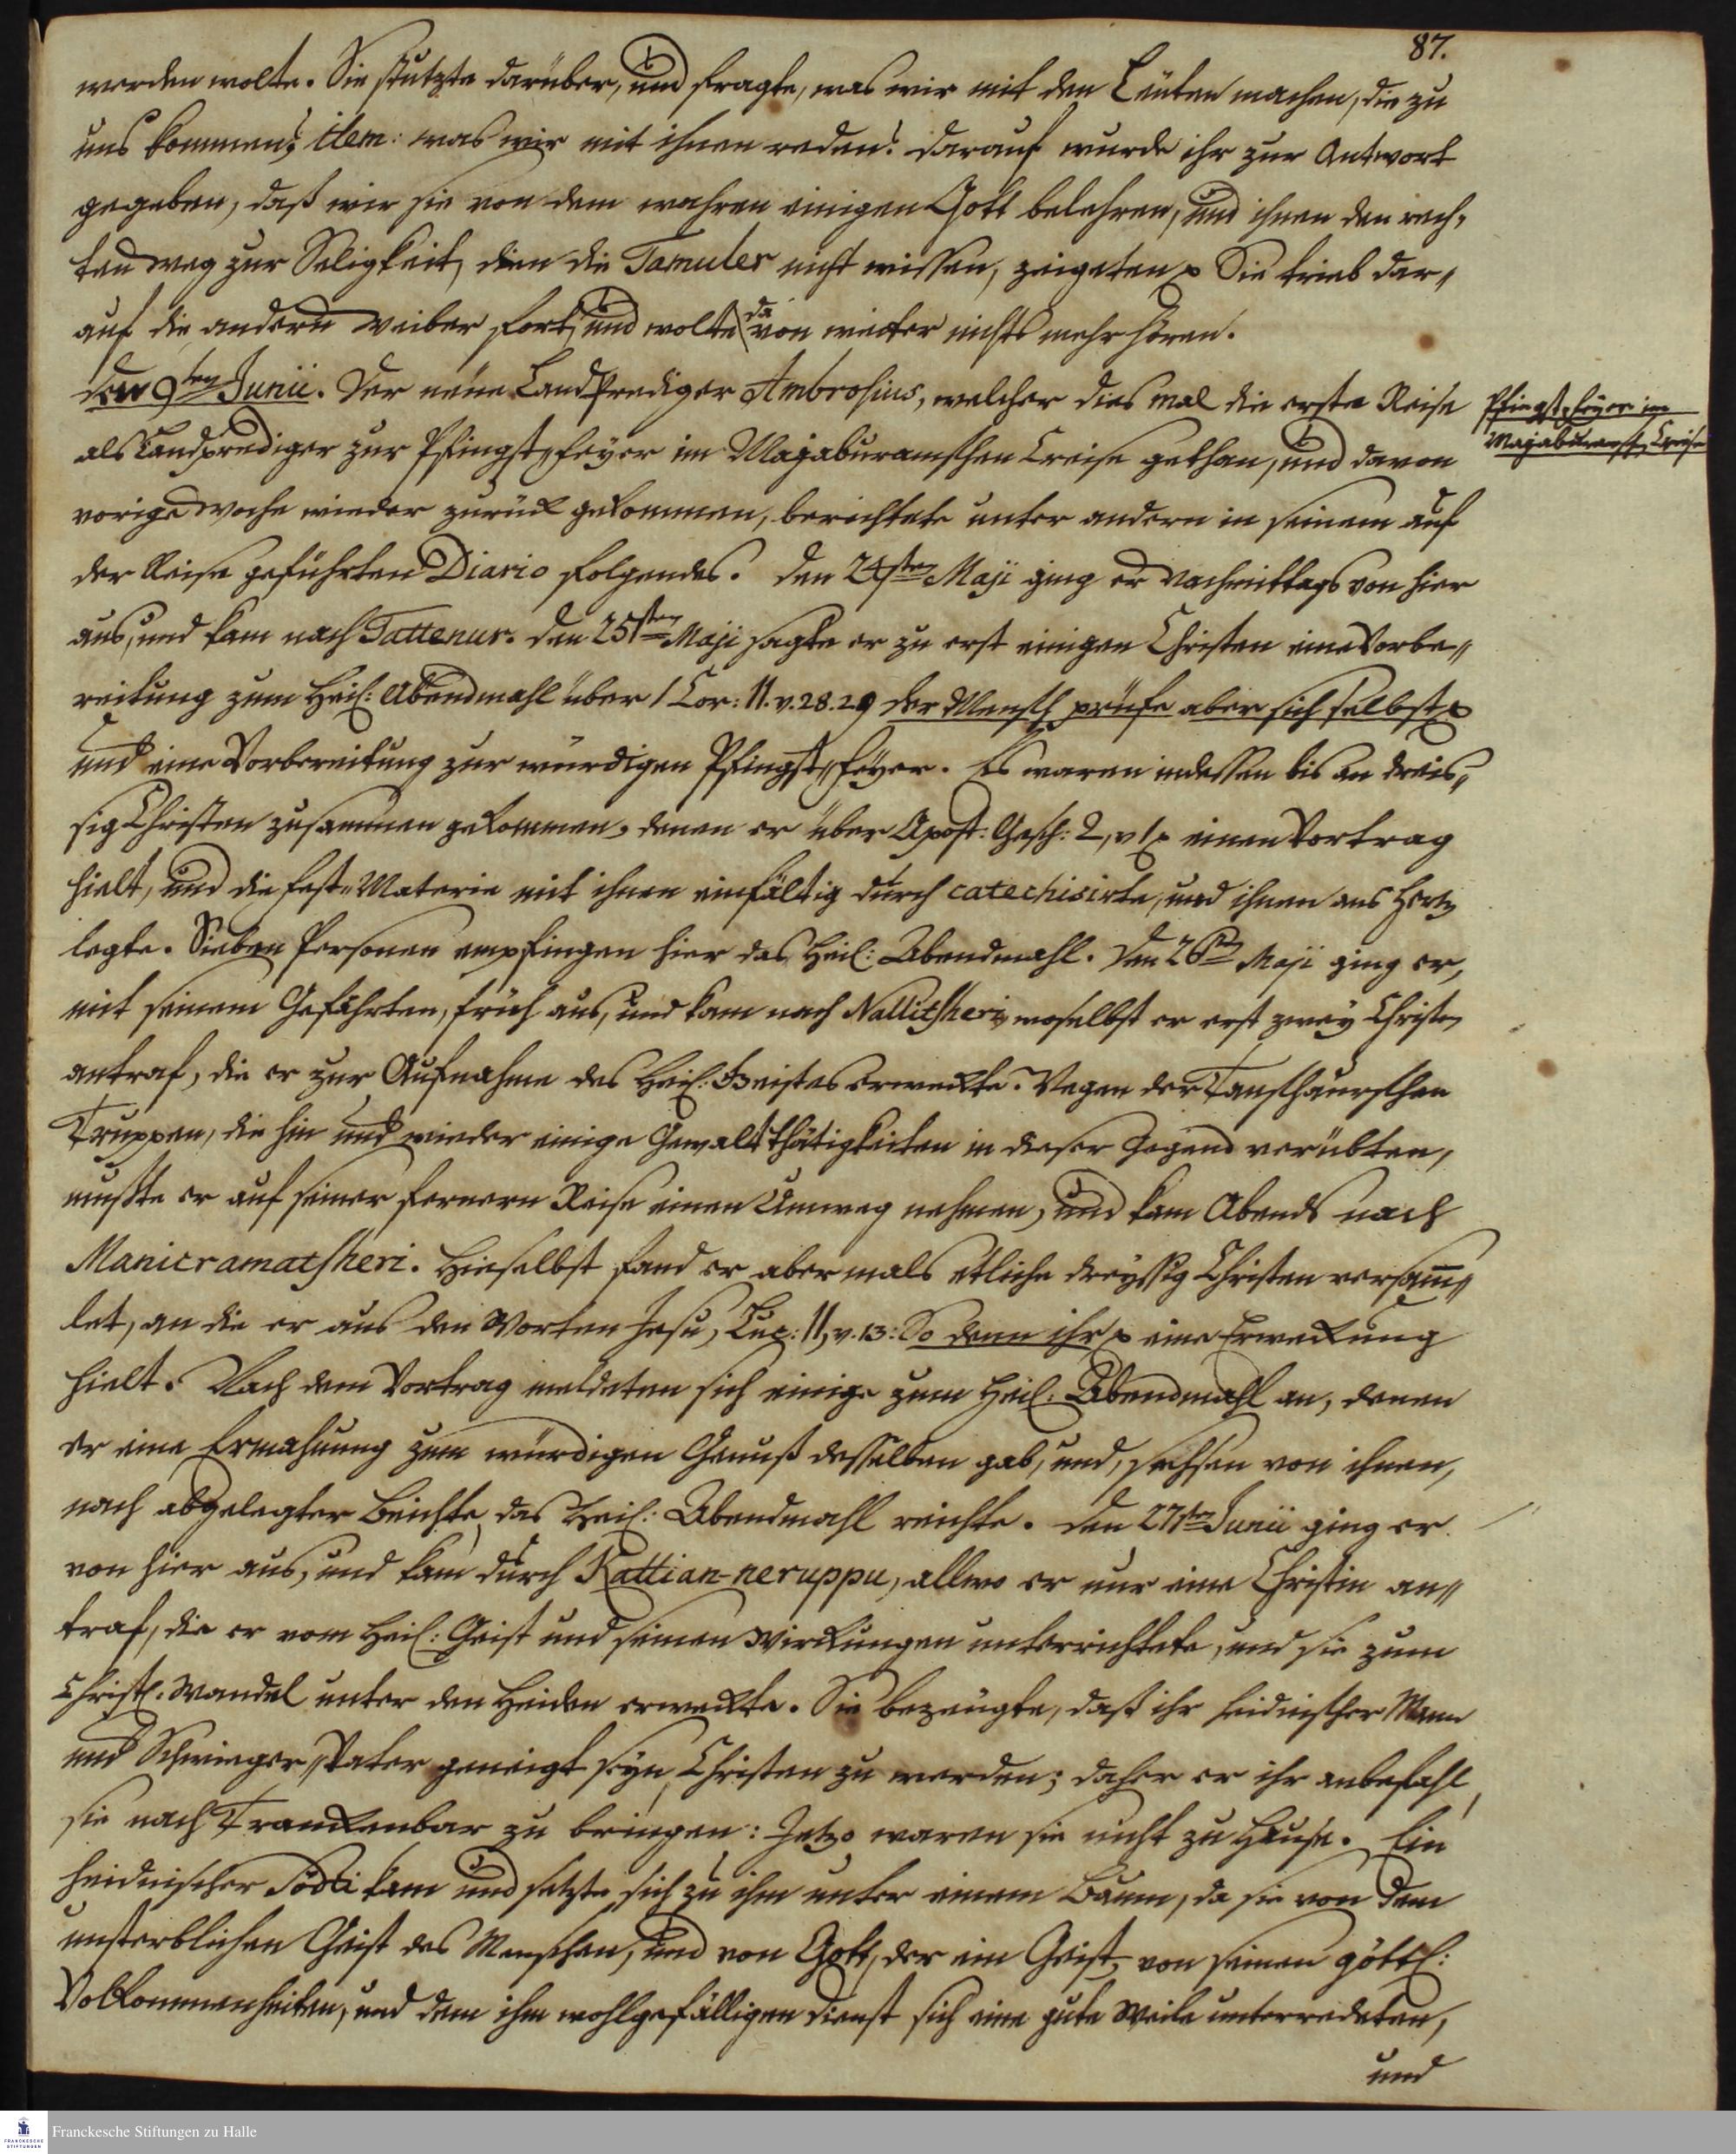 87.
werden wolte. Sie stutzte darüber, und fragte, was wir mit den Leuten machen, die zu
uns kommen; item: was wir mit ihnen reden? darauf wurde ihr zur Antwort
gegeben, daß wir sie von dem wahren einigen Gott belehren, und ihnen den rech„
ten weg zur Seligkeit, den die Tamuler nicht wissen, zeigeten. Sie trieb dar„
auf die andern weiber fort, und wolte davon weiter nichts mehr hören.
den 9ten Junii. Der neue Landprediger Ambrosius, welcher dies mal die erste Reise
als Landprediger zur Pfingst„feyer im Majaburamschen Creise gethan, und davon
vorige woche wieder zurück gekommen, berichtete unter andern in seinem auf
der Reise geführten Diario folgendes. Den 24sten Maji ging er Nachmittags von hier
aus, und kam nach Tattenur. den 25sten Maji sagte er zu erst einigen Christen eine Vorbe„
reitung zum Heil: Abendmahl über 1 Cor: 11. v. 28. 29 der Mensch prüfe aber sich selbst
und eine Vorbereitung zur würdigen Pfingst„feyer. Es waren indessen bis an dreis„
sig Christen zusammen gekommen, denen er über Apost. Gesch: 2, v 1 einen Vortrag
hielt, und die fest„Materie mit ihnen einfältig durch catechisirte, und ihnen ans Hertz
legte. Sieben Personen empfingen hier das Heil: Abendmahl. Den 26sten Maji ging er,
mit seinem Gefährten, früh aus, und kam nach Nallitsheri, woselbst er erst zwey Christen
antraf, die er zur Aufnahme des Heil: Geistes erweckte. Wegen der Tanschaurschen
Truppen, die hin und wieder einige Gewaltthätigkeiten in dieser Gegend verübten,
mußte er auf seiner fernern Reise einen Umweg nehmen, und kam Abends nach
Manicramatsheri. Hieselbst fand er abermals etliche dreyßig Christen versam̅„
let, an die er aus den Worten Jesu, Luc: 11, v. 13: So denn ihr eine Erweckung
hielt. Nach dem Vortrag meldeten sich einige zum Heil: Abendmahl an, denen
er eine Ermahnung zum würdigen Genuß desselben gab, und, sechsen von ihnen,
nach abgelegter Beichte, das Heil: Abendmahl reichte. den 27sten Junii ging er
von hier aus, und kam durch Kattian-neruppu, allwo er nur eine Christin an„
traf, die er vom Heil: Geist und seinen Wirckungen unterrichtete, und sie zum
Christl: Wandel unter den Heiden erweckte. Sie bezeugte, daß ihr heidnischer Mann
und Schwieger„Vater geneigt seyn, Christen zu werden; daher er ihr anbefahl,
sie nach Tranckenbar zu bringen: Jetzo waren sie nicht zu Hause. Ein
heidnischer kam und setzte sich zu ihm unter einem Baum, da sie von dem
unsterblichen Geist des Menschen, und von Gott, der ein Geist, von seinen göttl:
Vollkommenheiten, und dem ihm wohlgefälligen dienst sich eine gute Weile unterredeten,
und
Pfingst„feyer im
Majaburamsch. Creise
Franckesche Stiftungen zu Halle
FRANCKESCHE
STIFTUNGEN